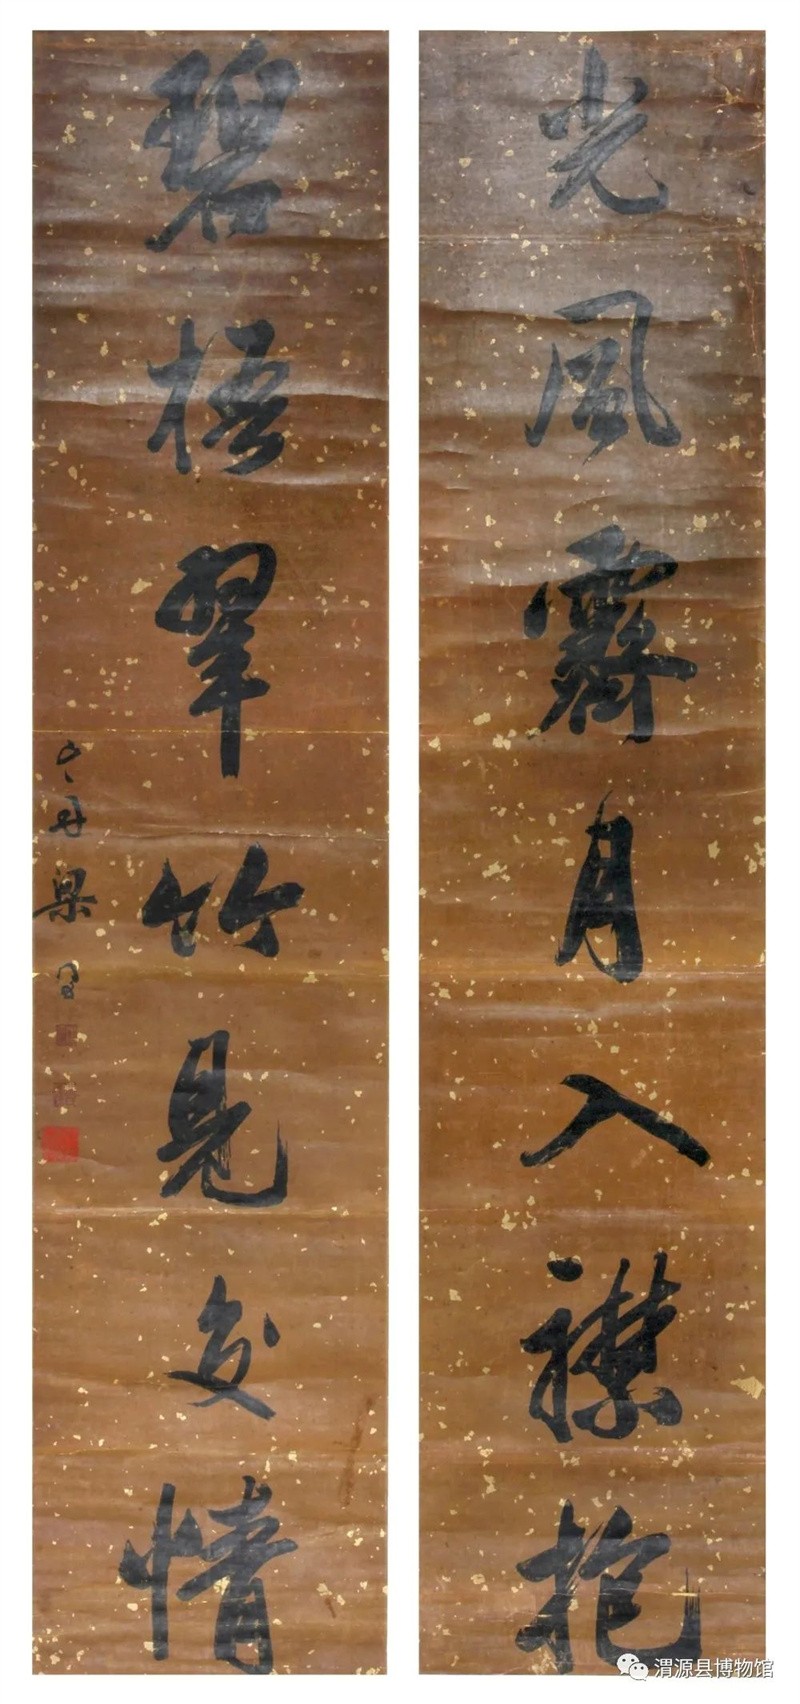 光風霽月入襟抱
碧梧翠竹見交情
舟梁
渭源县博物馆